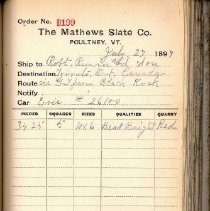 Order No. B199
The Mathews Slate Co.
POULTNEY, VT.
July 27 1897
Ship to Robt. Rennie and Son
Destination Toronto, Ont. Canada
Route via G. T. from Black Rock
Notify
Car Erie # 26180
PIECES SQUARES SIZES QUALITIES QUARRY
10x6 Best Bright Red